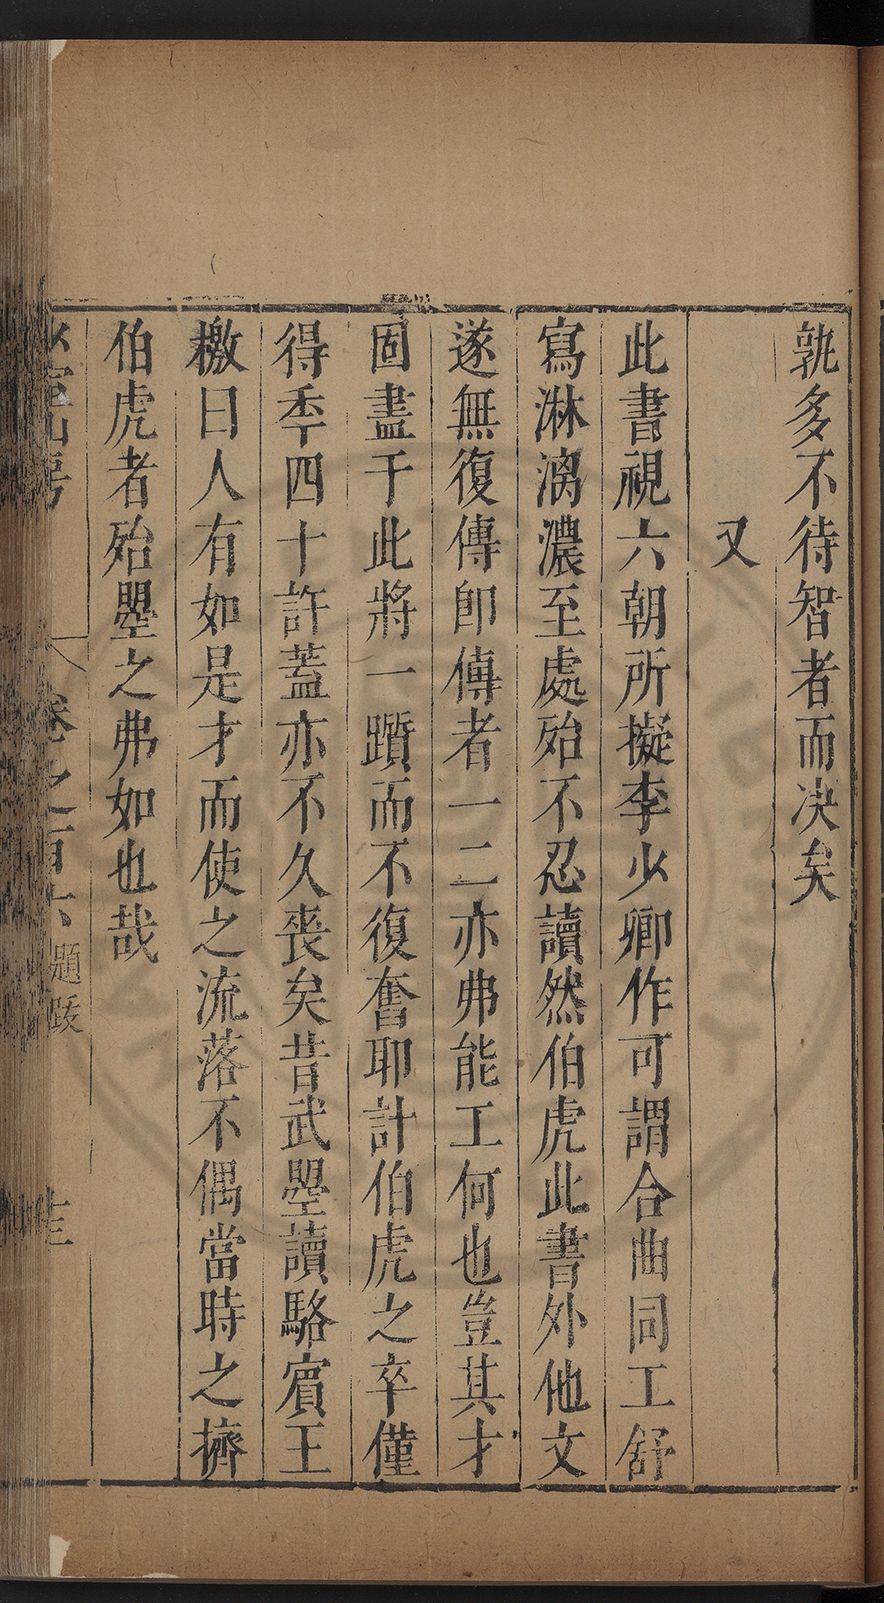 孰多不待智者而决矣
又
此書視六朝所擬李少卿作可謂合曲同工舒
寫淋漓濃至處殆不忍讀然伯虎此書外他文
遂無復傳卽傳者一二亦弗能工何也豈其才
固盡于此將一躓而不復奮耶計伯虎之卒僅
得秊四十許蓋亦不久喪矣昔武曌讀駱賔王
檄曰人有如是才而使之流落不偶當時之擠
伯虎者殆曌之弗如也哉
少室山房 卷之百六 題跋